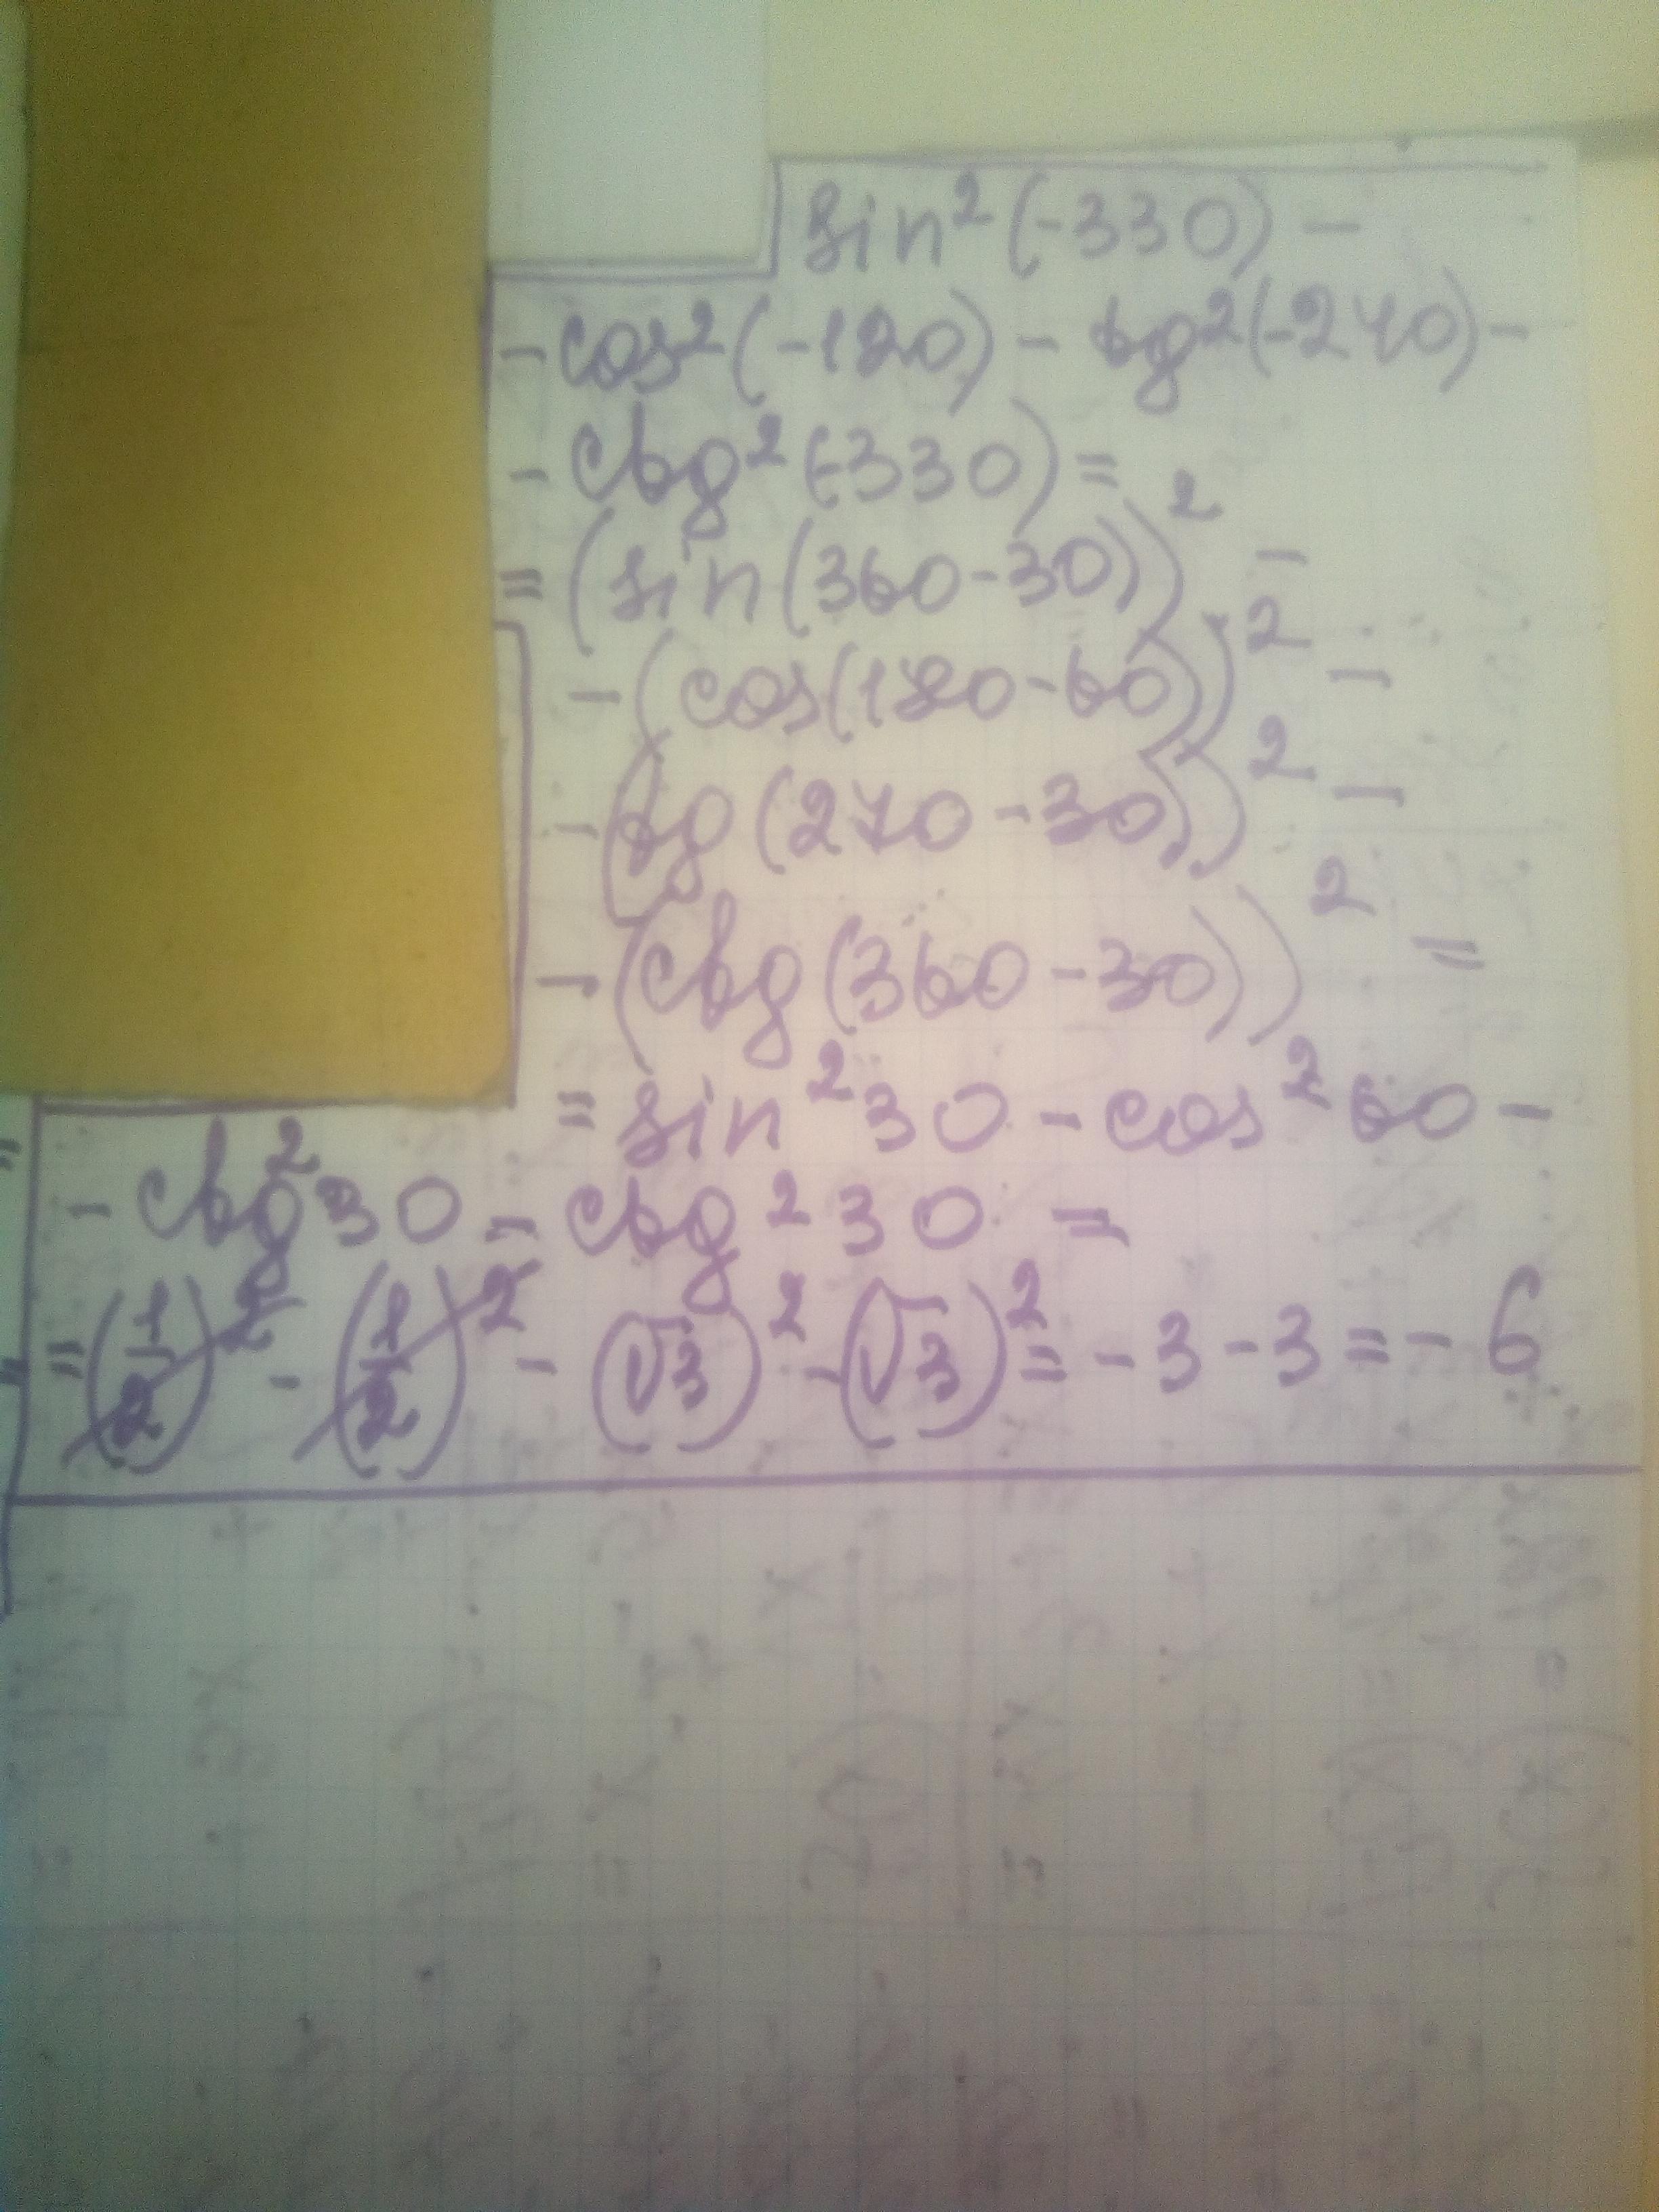 sin²(-330) -
- cos²(-120) - tg²(-240) -
- ctg²(-330) =
= (sin(360-30))² -
- (cos(180-60))² -
- (tg(270-30))² -
- (ctg(360-30))² =
= sin²30 - cos²60 -
- ctg²30 - ctg²30 =
= (1/2)² - (1/2)² - (√3)² - (√3)² = -3 - 3 = -6